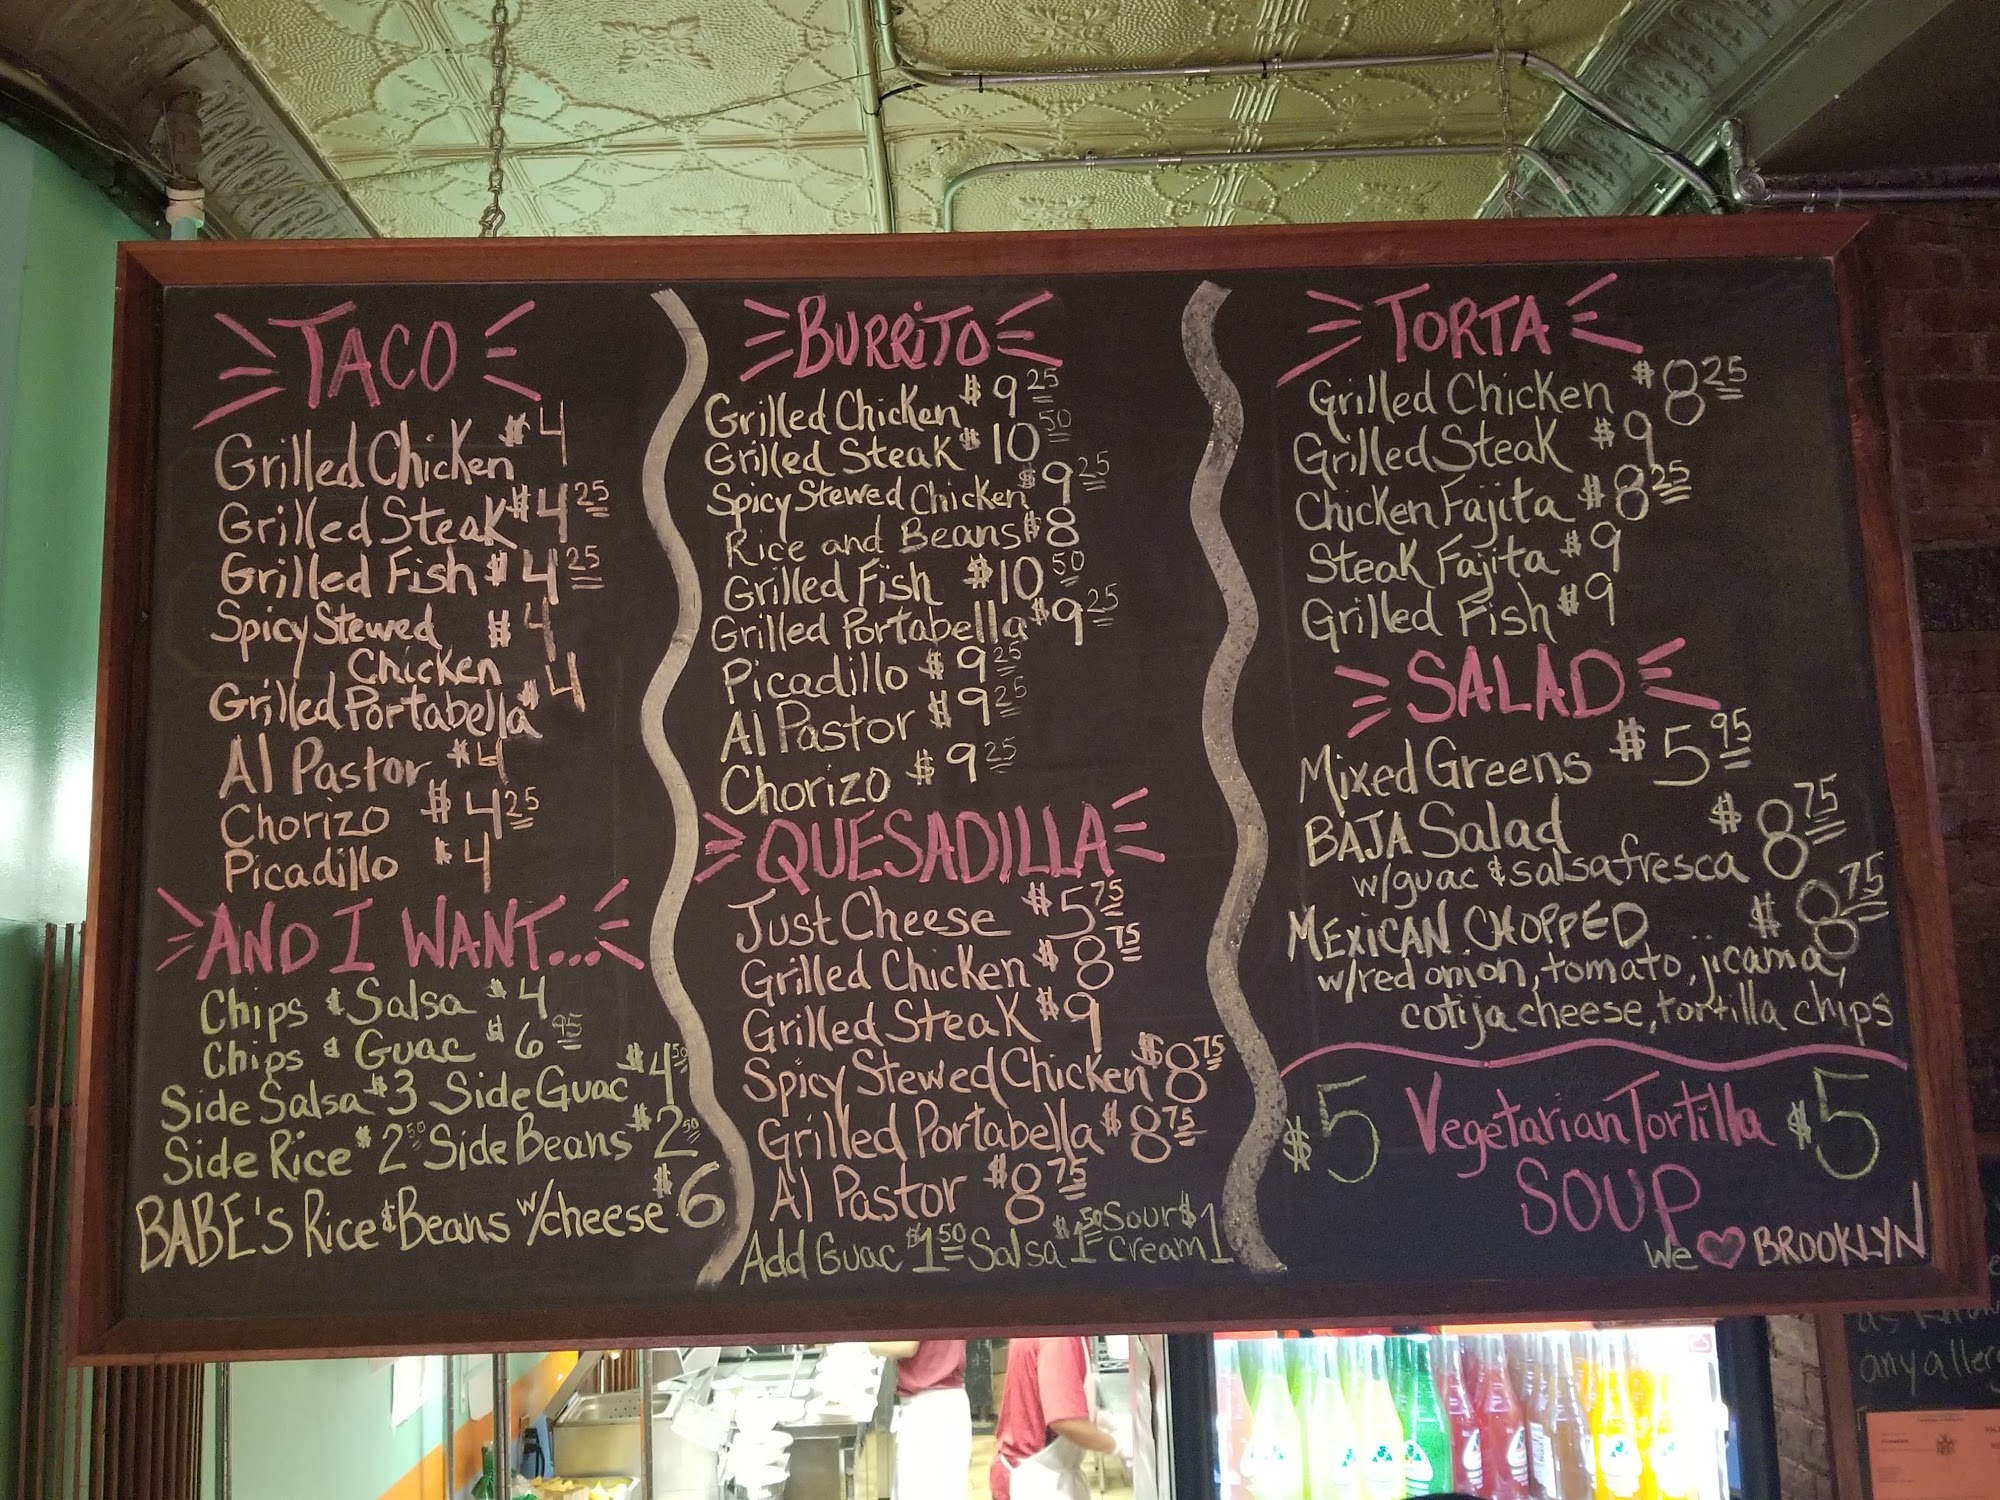 TACO
Grilled Chicken $4
Grilled Steak $4 25
Grilled Fish $4 25
Spicy Stewed $4
Chicken
Grilled Portabella $4
Al Pastor $4
Chorizo $4 25
Picadillo $4
AND I WANT...
Chips & Salsa $4
Chips & Guac $6 95
Side Salsa $3 Side Guac $4 50
Side Rice $2 50 Side Beans $2 50
BABE'S Rice & Beans w/cheese $6
BURRITO
Grilled Chicken $9 25
Grilled Steak $10 50
Spicy Stewed Chicken $9 25
Rice and Beans $8
Grilled Fish $10 50
Grilled Portabella $9 25
Picadillo $9 25
Al Pastor $9 25
Chorizo $9 25
QUESADILLA
Just Cheese $5 75
Grilled Chicken $8 75
Grilled Steak $9
Spicy Stewed Chicken $8 75
Grilled Portabella $8 75
Al Pastor $8 75
Add Guac $1 50 Salsa $1 50 Sour Cream $1
TORTA
Grilled Chicken $8 25
Grilled Steak $9
Chicken Fajita $8 25
Steak Fajita $9
Grilled Fish $9
SALAD
Mixed Greens $5 95
BAJA Salad $8 75
w/guac & salsa fresca
MEXICAN CHOPPED $8 75
w/red onion, tomato, jicama,
cotija cheese, tortilla chips
$5 Vegetarian Tortilla $5
SOUP
We ♡ BROOKLYN
any aller